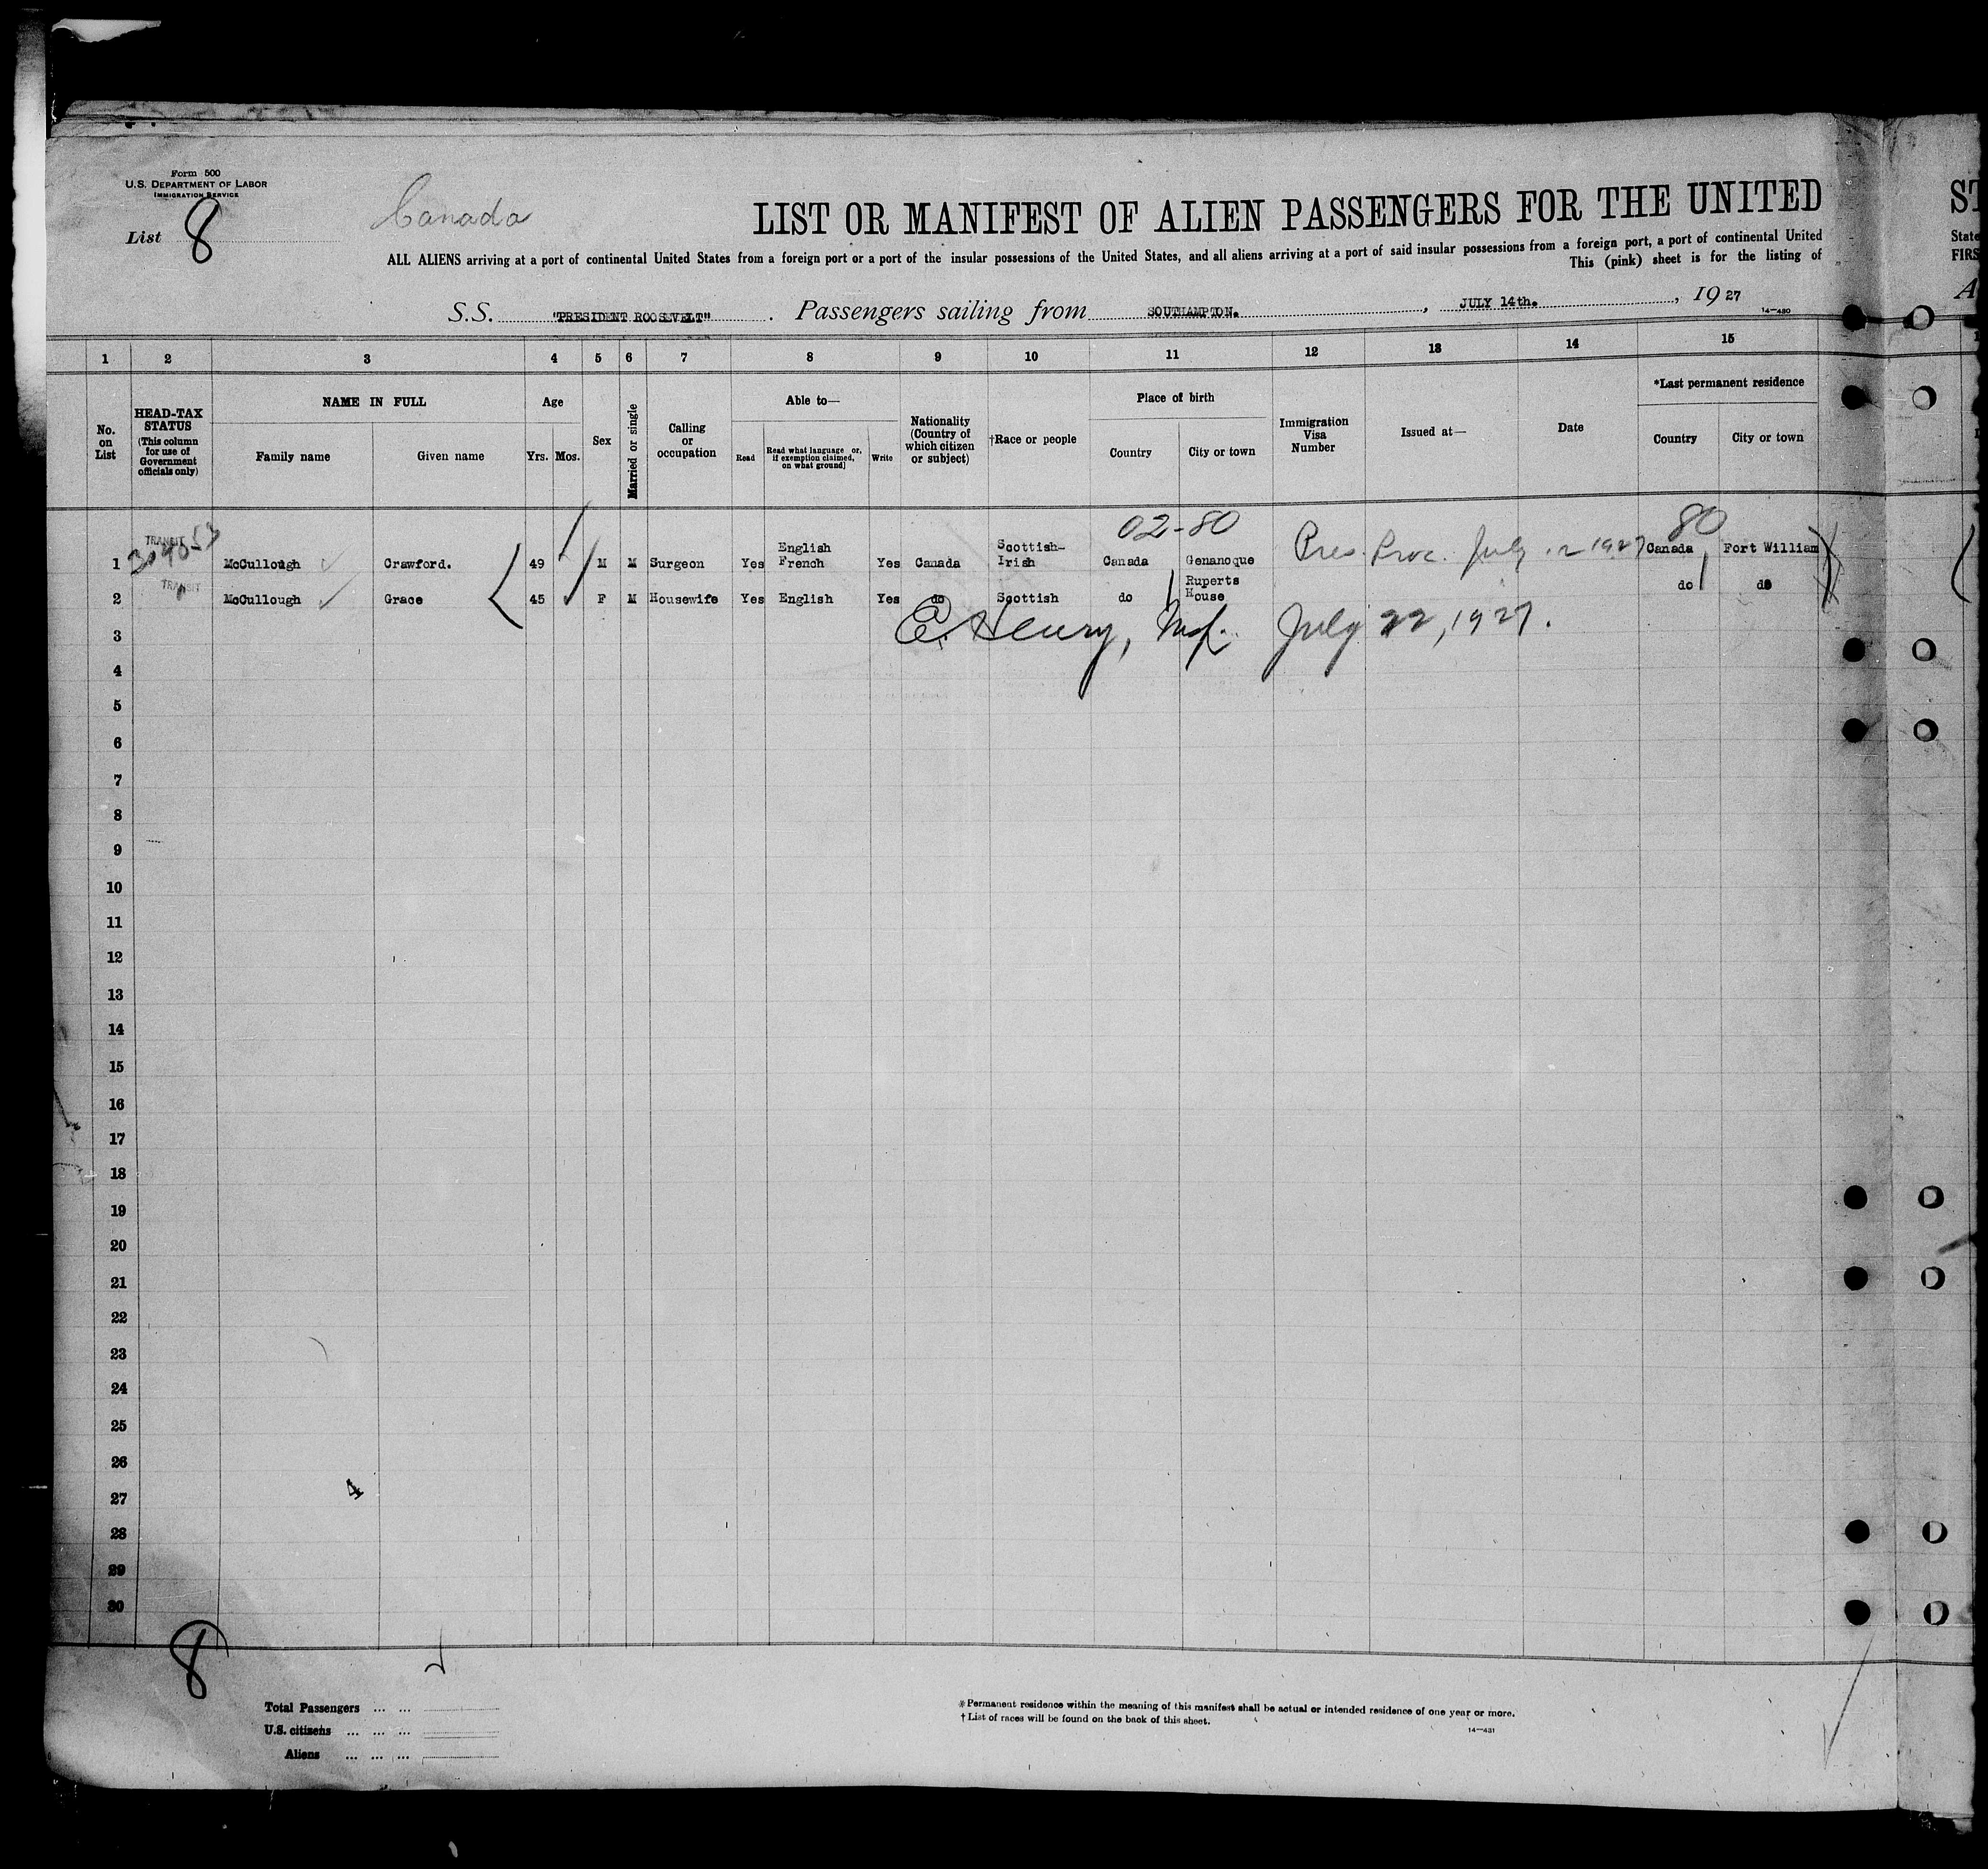 Form 500
U.S. DEPARTMENT OF LABOR
IMMIGRATION SERVICE
List 8
Canada
LIST OR MANIFEST OF ALIEN PASSENGERS FOR THE UNITED
ALL ALIENS arriving at a port of continental United States from a foreign port or a port of the insular possessions of the United States, and all aliens arriving at a port of said insular possessions from a foreign port, a port of continental United
This (pink) sheet is for the listing of
S.S. "PRESIDENT ROOSEVELT". Passengers sailing from SOUTHAMPTON. , JULY 14th. , 19 27
14—430
ST
State
FIRS
A
1 2 3 4 5 6 7 8 9 10 11 12 13 14 15
No. on List
HEAD-TAX STATUS (This column for use of Government officials only)
NAME IN FULL
Family name Given name
Age
Yrs. Mos.
Sex
Married or single
Calling or occupation
Able to—
Read Read what language or, if exemption claimed, on what ground] Write
Nationality (Country of which citizen or subject)
†Race or people
Place of birth
Country City or town
Immigration Visa Number
Issued at—
Date
*Last permanent residence
Country City or town
02-80 80
TRANSIT
1 McCullough Crawford. 49 M M Surgeon Yes English French Yes Canada Scottish-Irish Canada Genanoque Pres. Proc. July 1927 Canada Fort William
TRANSIT
2 McCullough Grace 45 F M Housewife Yes English Yes do Scottish do Ruperts House do do
3 E. Henry, Insp. July 22, 1927.
4
5
6
7
8
9
10
11
12
13
14
15
16
17
18
19
20
21
22
23
24
25
26
4
27
28
29
30
8
Total Passengers ... ...
U.S. citizens ... ... ...
Aliens ... ... ...
*Permanent residence within the meaning of this manifest shall be actual or intended residence of one year or more.
†List of races will be found on the back of this sheet.
14—431